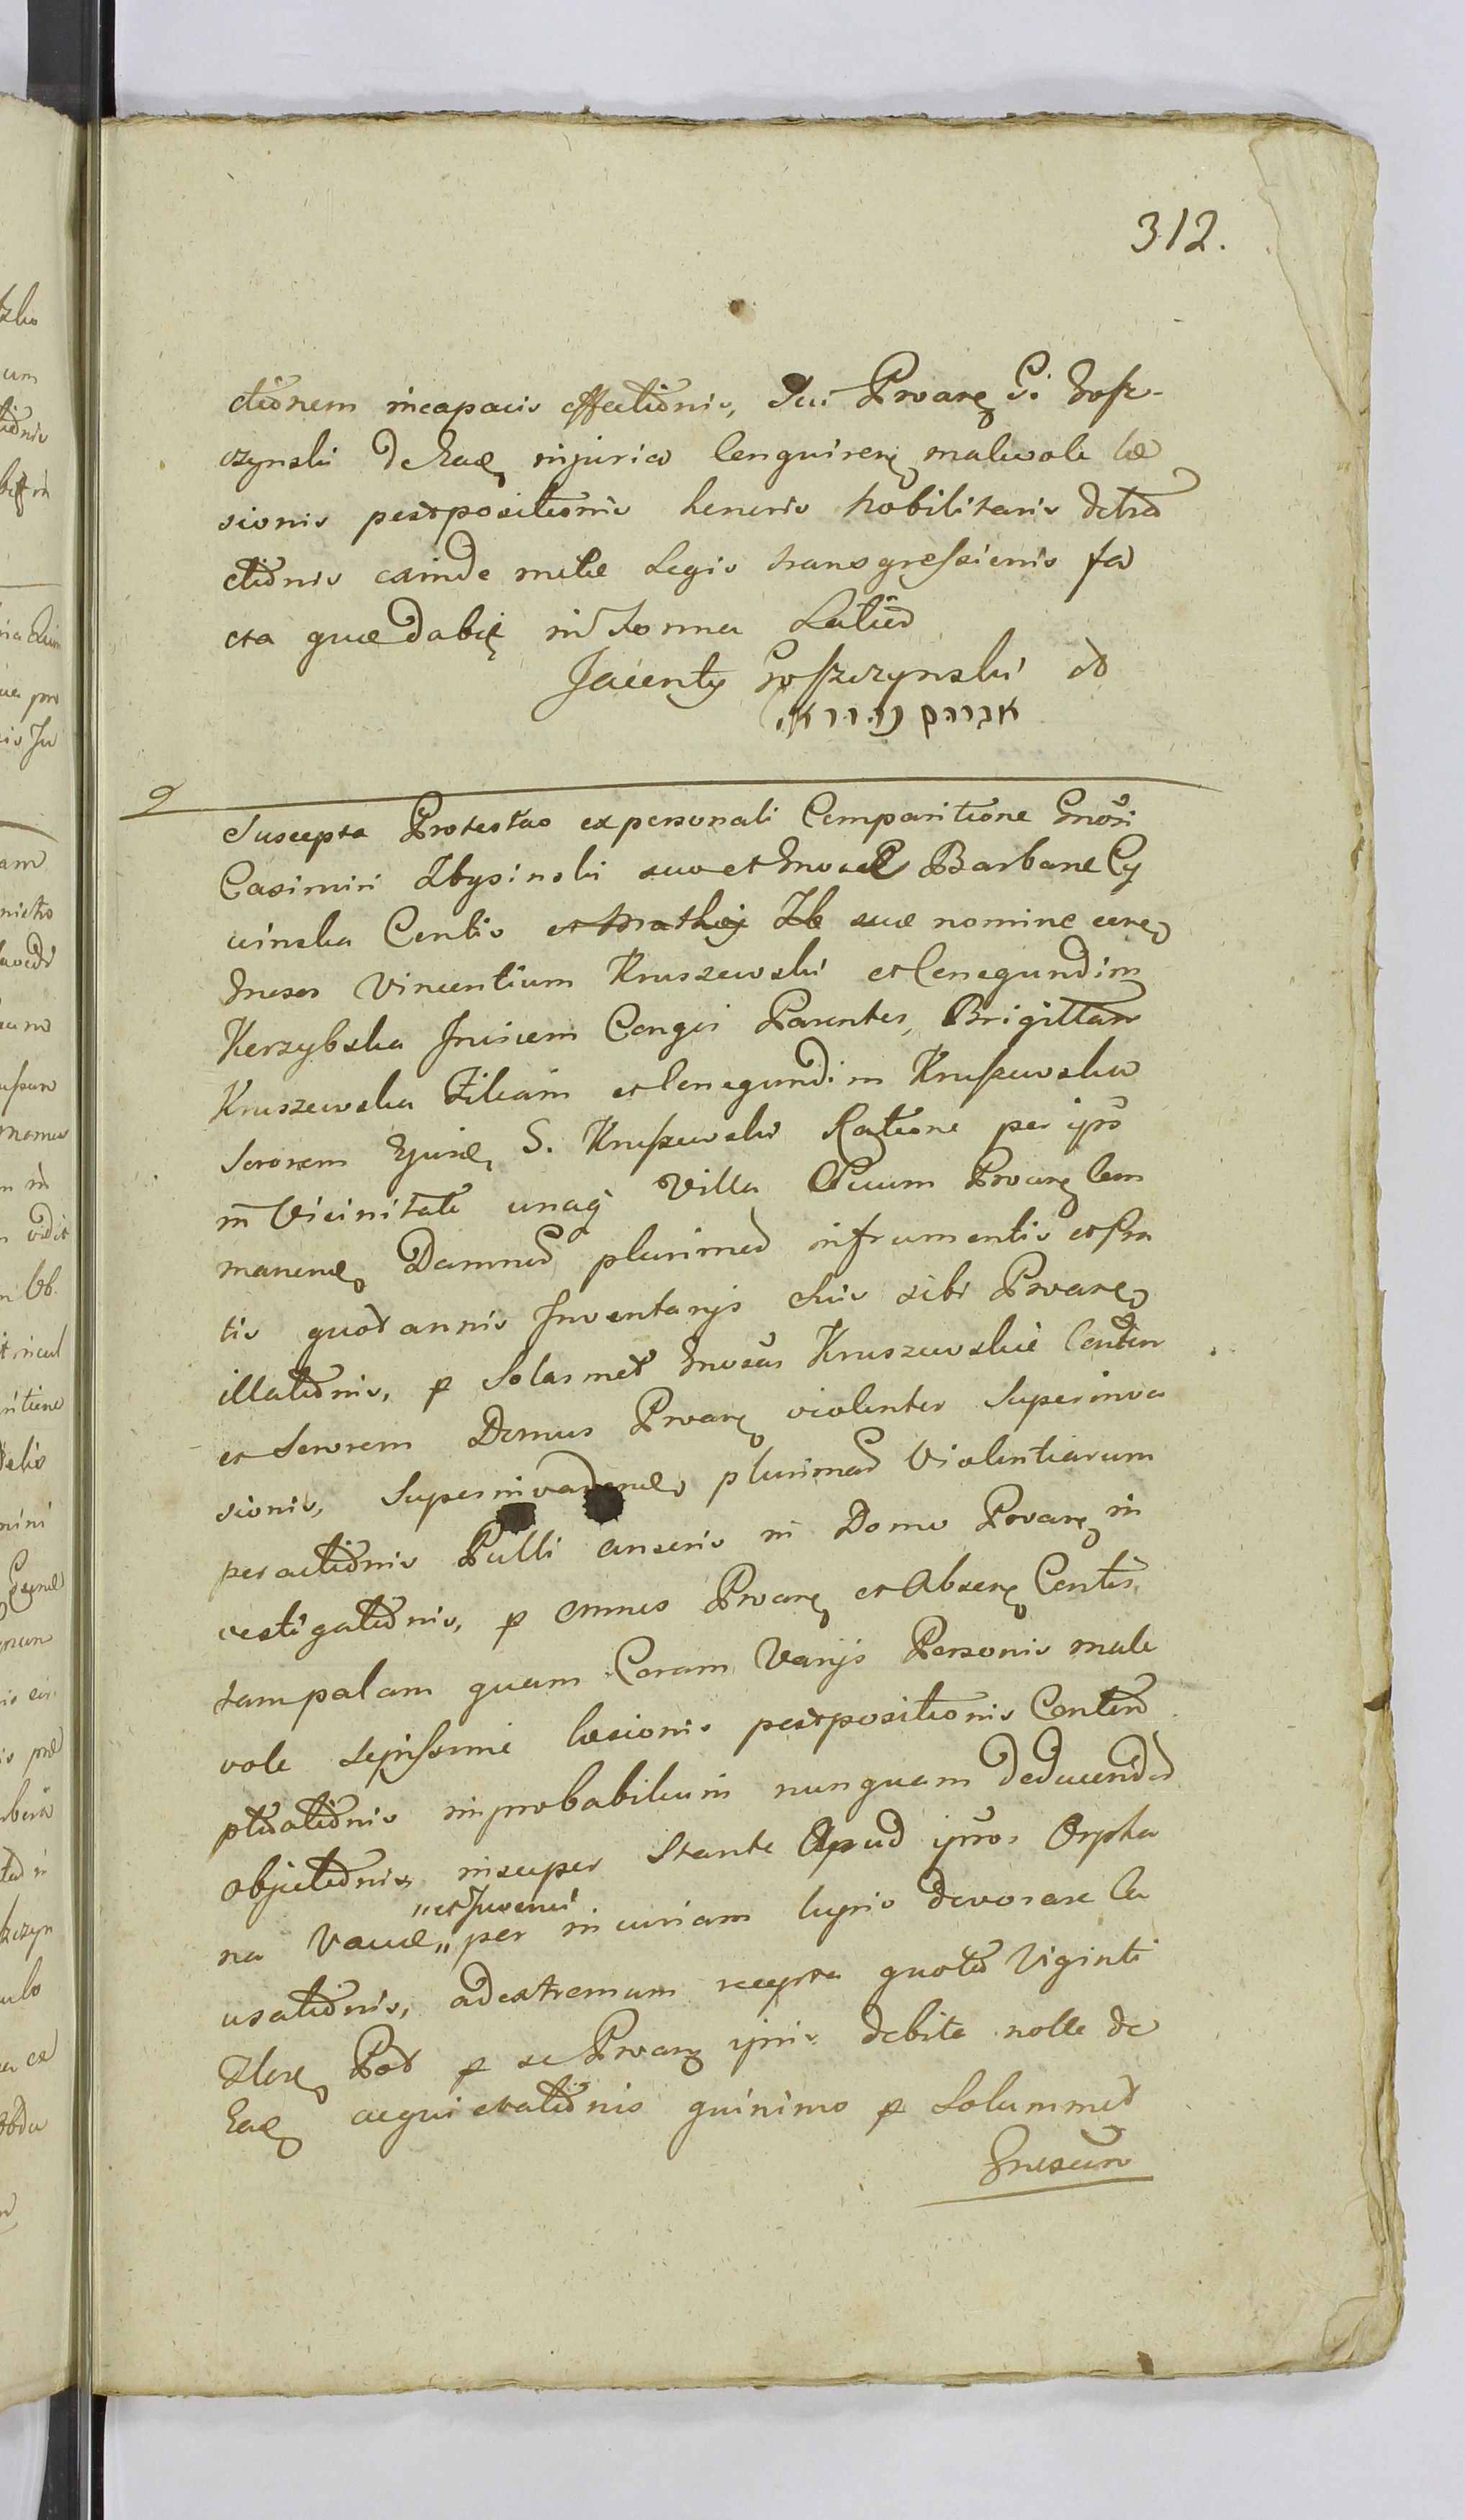 312.
ctionem incapacis effectionis, Sui Proarz G. Goſz-
czynski de Eadz injuria Conquirenz malevole læ
sionis postpositionis honoris Nobilitaris detra
ctionis exinde mulctæ Legis transgreſsionis fa
cta quæ dabitz in Forma Latiori
Jacenty Goſzczynski
אברהם
Suscepta Protestao ex personali Comparitione Gnosi
Casimiri Zbysinski suo et Gnosæ Barbaræ Cy
winska Contis et Mathej Zb suæ nomine conz
Gnosos Vincentium Kruszewski et Conegundim
Kerzybska Invicem Conges Parentes, Brigittam
Kruszewska Filiam et Conegundim Kruſzewska
Sororem Ejusdz G. Kruſzewski Ratione per ipsos
in Vicinitate unaq Villa Secum Proarz Com
manendz Damnor plurimor in frumentis et Pra
tis quot annis Inventarijs Suis sibi Proarz
illationis, p Solasmet Gnosas Kruszewskie Contem
et Sororem Domus Proarz violenter Superinva
sionis, Superinvadendz plurimar Violentiarum
peractionis Pulli anseris in Domo Proarz in
vestigationis, p omnes Proarz et Absenz Contis
tam palam quam Coram Varijs Personis male
vole sepiſsime læsionis postpositionis Contem
ptisationis improbabilium nunquam deducendor
objectionis insuper Stante Apud ipsos Orpha
na Vacca „ per incuriam lupis devorare Ca
„et Juvenci
usationis, ad extremum recepta quota Viginti
Florz Pol p se Proarz ipsis debita nolle de
Eadz acquietationis quinimo p Solummet
Gnosam